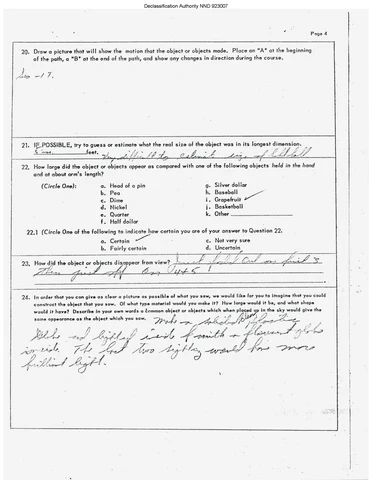 Declassification Authority NND 923007
Page 4
20. Draw a picture that will show the motion that the object or objects made. Place an "A" at the beginning
of the path, a "B" at the end of the path, and show any changes in direction during the course.
See - 17.
21. IF POSSIBLE, try to guess or estimate what the real size of the object was in its longest dimension.
feet. Very difficult to estimate size of
22. How large did the object or objects appear as compared with one of the following objects held in the hand
and at about arm's length?
(Circle One): a. Head of a pin g. Silver dollar
b. Pea h. Baseball
c. Dime i. Grapefruit ✓
d. Nickel j. Basketball
e. Quarter k. Other
f. Half dollar
22.1 (Circle One of the following to indicate how certain you are of your answer to Question 22.
a. Certain ✓ c. Not very sure
b. Fairly certain d. Uncertain
23. How did the object or objects disappear from view? Just faded out on first 3
then just off on 4 & 5
24. In order that you can give as clear a picture as possible of what you saw, we would like for you to imagine that you could
construct the object that you saw. Of what type material would you make it? How large would it be, and what shape
would it have? Describe in your own words a common object or objects which when placed up in the sky would give the
same appearance as the object which you saw. Make a
Globe and lighted inside with a
inside. The last two sighting would have more
brilliant light.